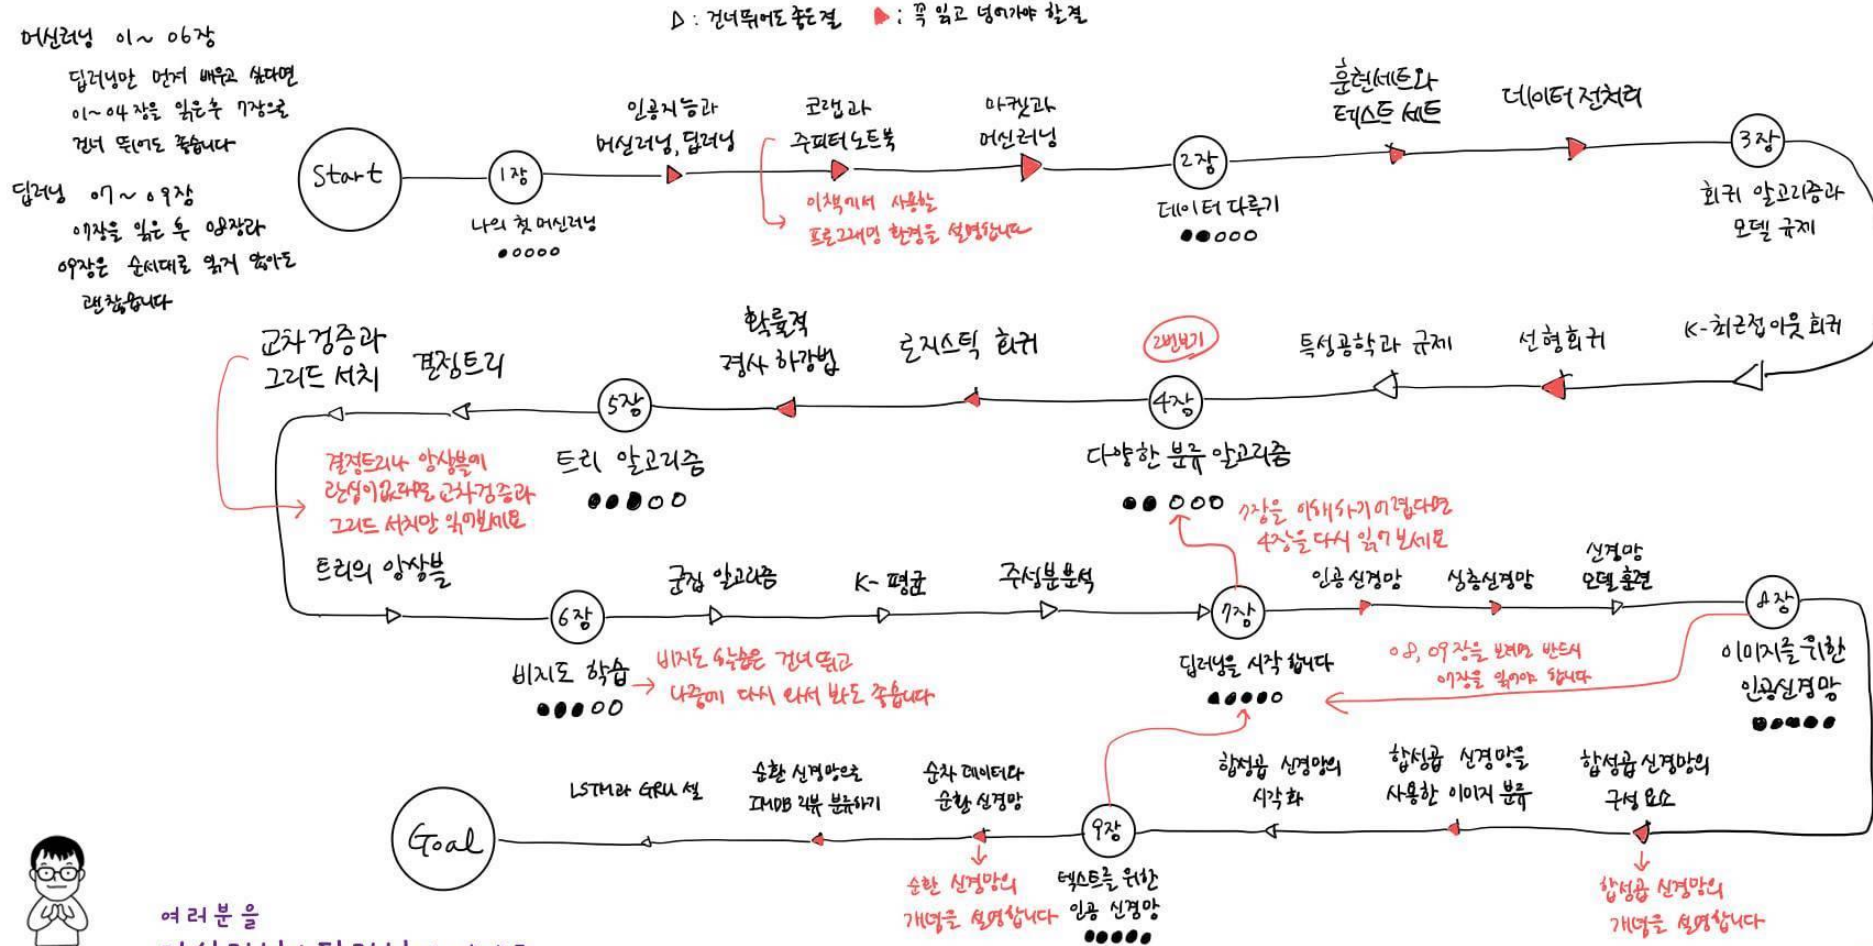 ▷ : 건너뛰어도 좋은 절 ▶ : 꼭 읽고 넘어가야 할 절
머신러닝 01~06장
딥러닝만 먼저 배우고 싶다면
01~04장을 읽은 후 7장으로
건너 뛰어도 좋습니다
딥러닝 07~09장
07장을 읽은 후 08장과
09장은 순서대로 읽지 않아도
괜찮습니다
Start
1장
나의 첫 머신러닝
인공지능과
머신러닝, 딥러닝
코랩과
주피터노트북
이책에서 사용할
프로그래밍 환경을 설명합니다
마켓과
머신러닝
2장
데이터 다루기
훈련세트와
테스트 세트
데이터 전처리
3장
회귀 알고리즘과
모델 규제
K-최근접이웃 회귀
선형회귀
특성공학과 규제
2번보기
4장
다양한 분류 알고리즘
로지스틱 회귀
확률적
경사 하강법
5장
트리 알고리즘
결정트리
교차검증과
그리드 서치
결정트리나 앙상블에
관심이없다면 교차검증과
그리드 서치만 읽어보세요
트리의 앙상블
6장
비지도 학습
비지도 학습은 건너 뛰고
나중에 다시 와서 봐도 좋습니다
군집 알고리즘
K-평균
주성분분석
7장
딥러닝을 시작 합니다
7장을 이해하기 어렵다면
4장을 다시 읽어 보세요
인공신경망
심층신경망
신경망
모델 훈련
8장
이미지를 위한
인공신경망
08, 09장을 보려면 반드시
07장을 읽어야 합니다
합성곱 신경망의
구성 요소
합성곱 신경망의
개념을 설명합니다
합성곱 신경망을
사용한 이미지 분류
합성곱 신경망의
시각화
9장
텍스트를 위한
인공 신경망
순차 데이터와
순환 신경망
순환 신경망의
개념을 설명합니다
순환 신경망으로
IMDB 리뷰 분류하기
LSTM과 GRU 셀
Goal
여러분을